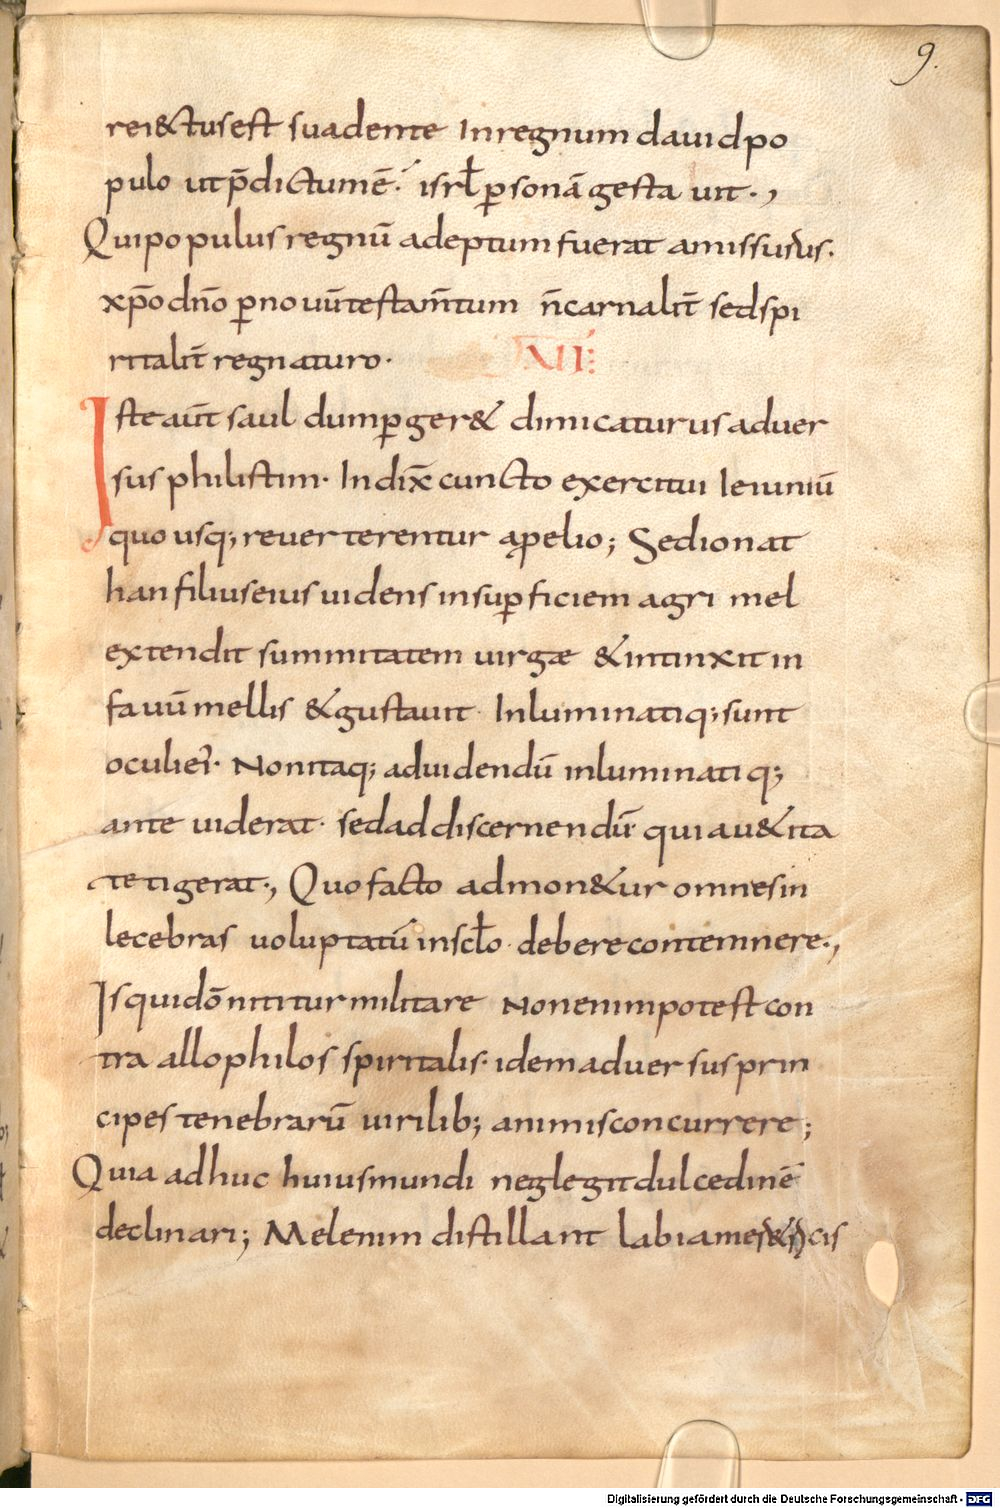 9.
rei&tusest suadente Inregnum dauidpo
pulo utp̄dictumē. isrł ꝑsonā gesta uit.,
Quipopulus regnū adeptum fuerat amissurus.
xp̄o dn̄o ꝑnouūtestam̄tum n̄carnalit̄ sedspi
ritalit̄ regnaturo. XII:
Iste aūt saul dumꝑger& dimicaturus aduer
sus philistim. Indix̄ cuncto exercitui Ieiuniū
quo usq; reuerterentur apelio; Sedionat
han filiuseius uidens insuꝑficiem agri mel
extendit summitatem uirgæ &intinxit in
fauū mellis &gustauit. Inluminatiq; sunt
oculiei. Nonitaq; aduidendū inluminatiq;
ante uiderat. sedaddiscernendū quiau&ita
tetigerat., Quo facto admon&ur omnesin
lecebras uoluptatū inscło deberecontemnere.,
Is quidō nititur militare Nonenimpotest con
tra allophilos spiritalis. idemaduersusprin
cipes tenebrarū uirilib; animisconcurrere;
Quia adhuc huiusmundi neglegitdulcedinē
declinari; Melenim distillant labiameretricis
Digitalisierung gefördert durch die Deutsche Forschungsgemeinschaft - DFG